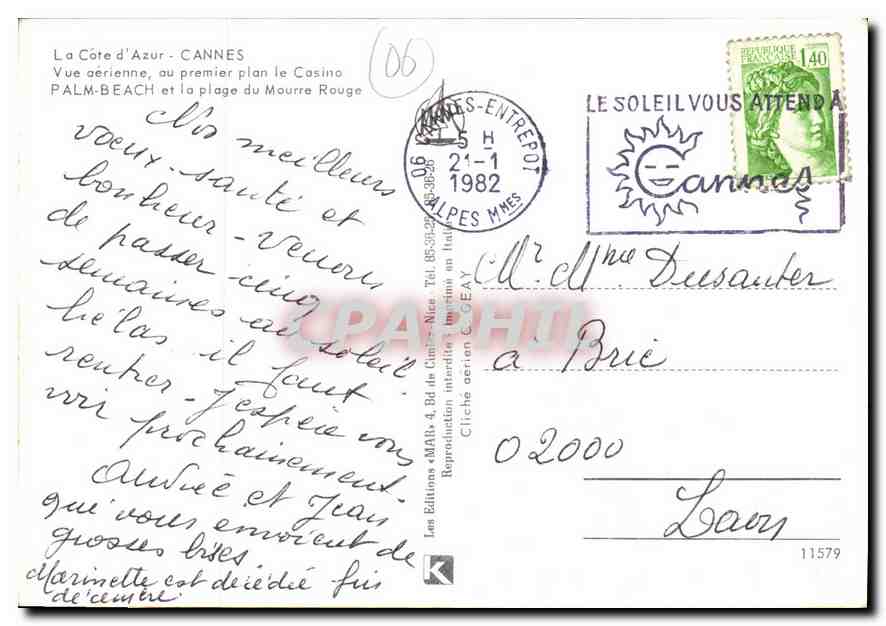 La Côte d'Azur - CANNES
Vue aérienne, au premier plan le Casino
PALM-BEACH et la plage du Mourre Rouge
(06)
Nos meilleurs
voeux - santé et
bonheur - Venons
de passer cinq
semaines au soleil.
hélas il faut
rentrer - J'espère vous
voir prochainement.
Andrée et Jean
qui vous envoient de
grosses bises
Marinette est décédée fin
décembre.
Les Editions «MAR» 4, Bd de Cimiez Nice. Tél. 85-36-25
Reproduction interdite Imprimé en Italie
Cliché aérien C. GEAY
K
06 CANNES-ENTREPOT
15 H
21-1
1982
ALPES Mmes
LE SOLEIL VOUS ATTEND À
Cannes
REPUBLIQUE
FRANÇAISE
1,40
Mr. Mme Dusauter
à Brie
02000
Laon
11579
CPAPHIL